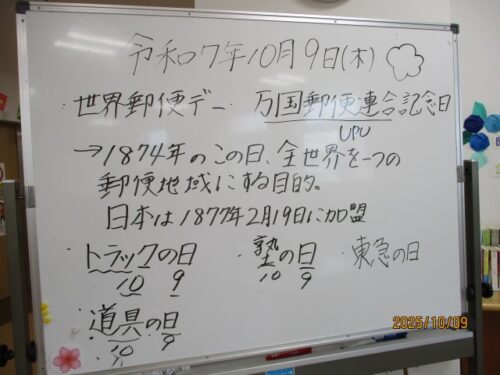 令和7年10月9日(木)
・世界郵便デー 万国郵便連合記念日
UPU
→1874年のこの日、全世界を一つの
郵便地域にする目的。
日本は1877年2月19日に加盟
・トラックの日 ・塾の日 ・東急の日
10 9 10 9
・道具の日
10 9
2025/10/09